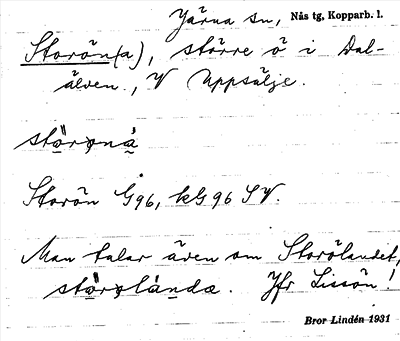 Järna sn, Nås tg, Kopparb. l.
Storön(a), större ö i Dal-
älven, V Uppsälje.
Storön G96, kG96 SV.
Man talar även om Storölandet,
Jfr Lissön!
Bror Lindén 1931